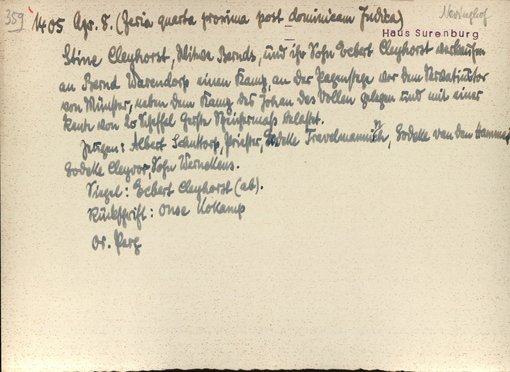 359
Nevinghof
1405 Apr. 8. (feria quarta proxima post dominicam Judica)
Haus Surenburg
Stine Cleyhorst, Witwe Bernds, und ihr Sohn Eckert Cleyhorst verkaufen
an Bernd Warendorp einen Kamp, an der Hagenstege vor dem
von Münster, neben dem Kamp des Johan des Vollen gelegen und mit einer
Rente von 20 Scheffel Gerste belastet.
Zeugen: Albert Priester, Godeke Travelmannink, Godeke van den Hamme
Godeke Cleyvor, Sohn Wernekens.
Siegel: Eckert Cleyhorst (ab).
Rückschrift: onse Kokamp
Or. Perg